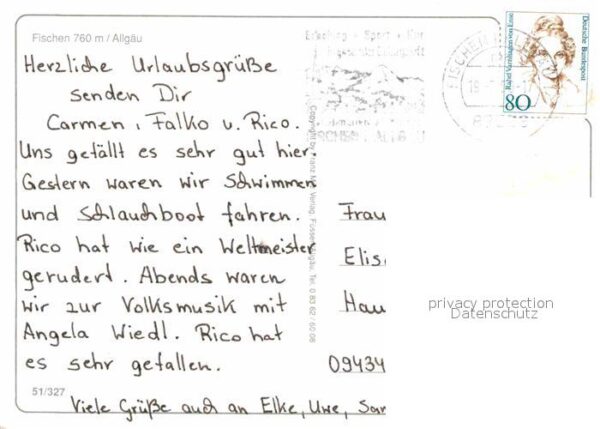 Fischen 760 m / Allgäu
Herzliche Urlaubsgrüße
senden Dir
Carmen, Falko u. Rico.
Uns gefällt es sehr gut hier.
Gestern waren wir Schwimmen
und Schlauchboot fahren.
Rico hat wie ein Weltmeister
gerudert. Abends waren
wir zur Volksmusik mit
Angela Wiedl. Rico hat
es sehr gefallen.
51/327
Viele Grüße auch an Elke, Uwe,
Copyright by Franz Verlag, Füssen/Allgäu, Tel. 0 83 62 / 60 06
Erholung - Sport - Kur
FISCHEN I. ALLGÄU
Deutsche Bundespost
80
Frau
Elis
Hau
09434
privacy protection
Datenschutz